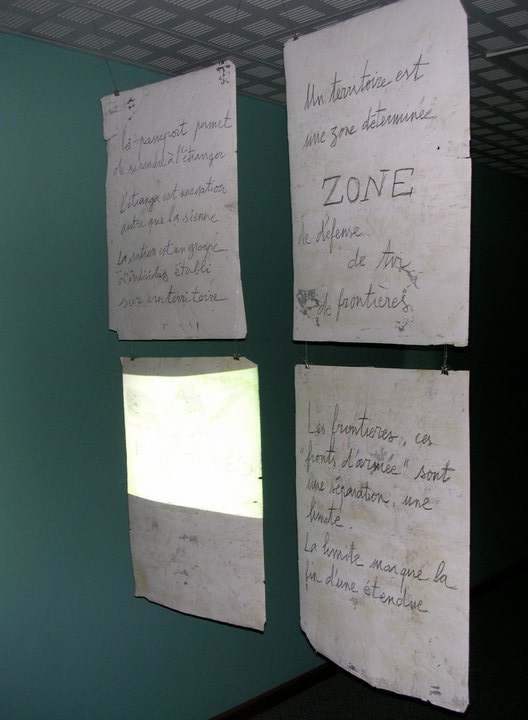 Le passport permet
de se rendre à l'étranger
L'étranger est une nation
autre que la sienne
La nation est un groupe
d'individus établi
sur un territoire
Un territoire est
une zone déterminée
ZONE
de défense
de tir
de frontières
Les frontières, ces
"fronts d'armée" sont
une séparation, une
limite.
La limite marque la
fin d'une étendue